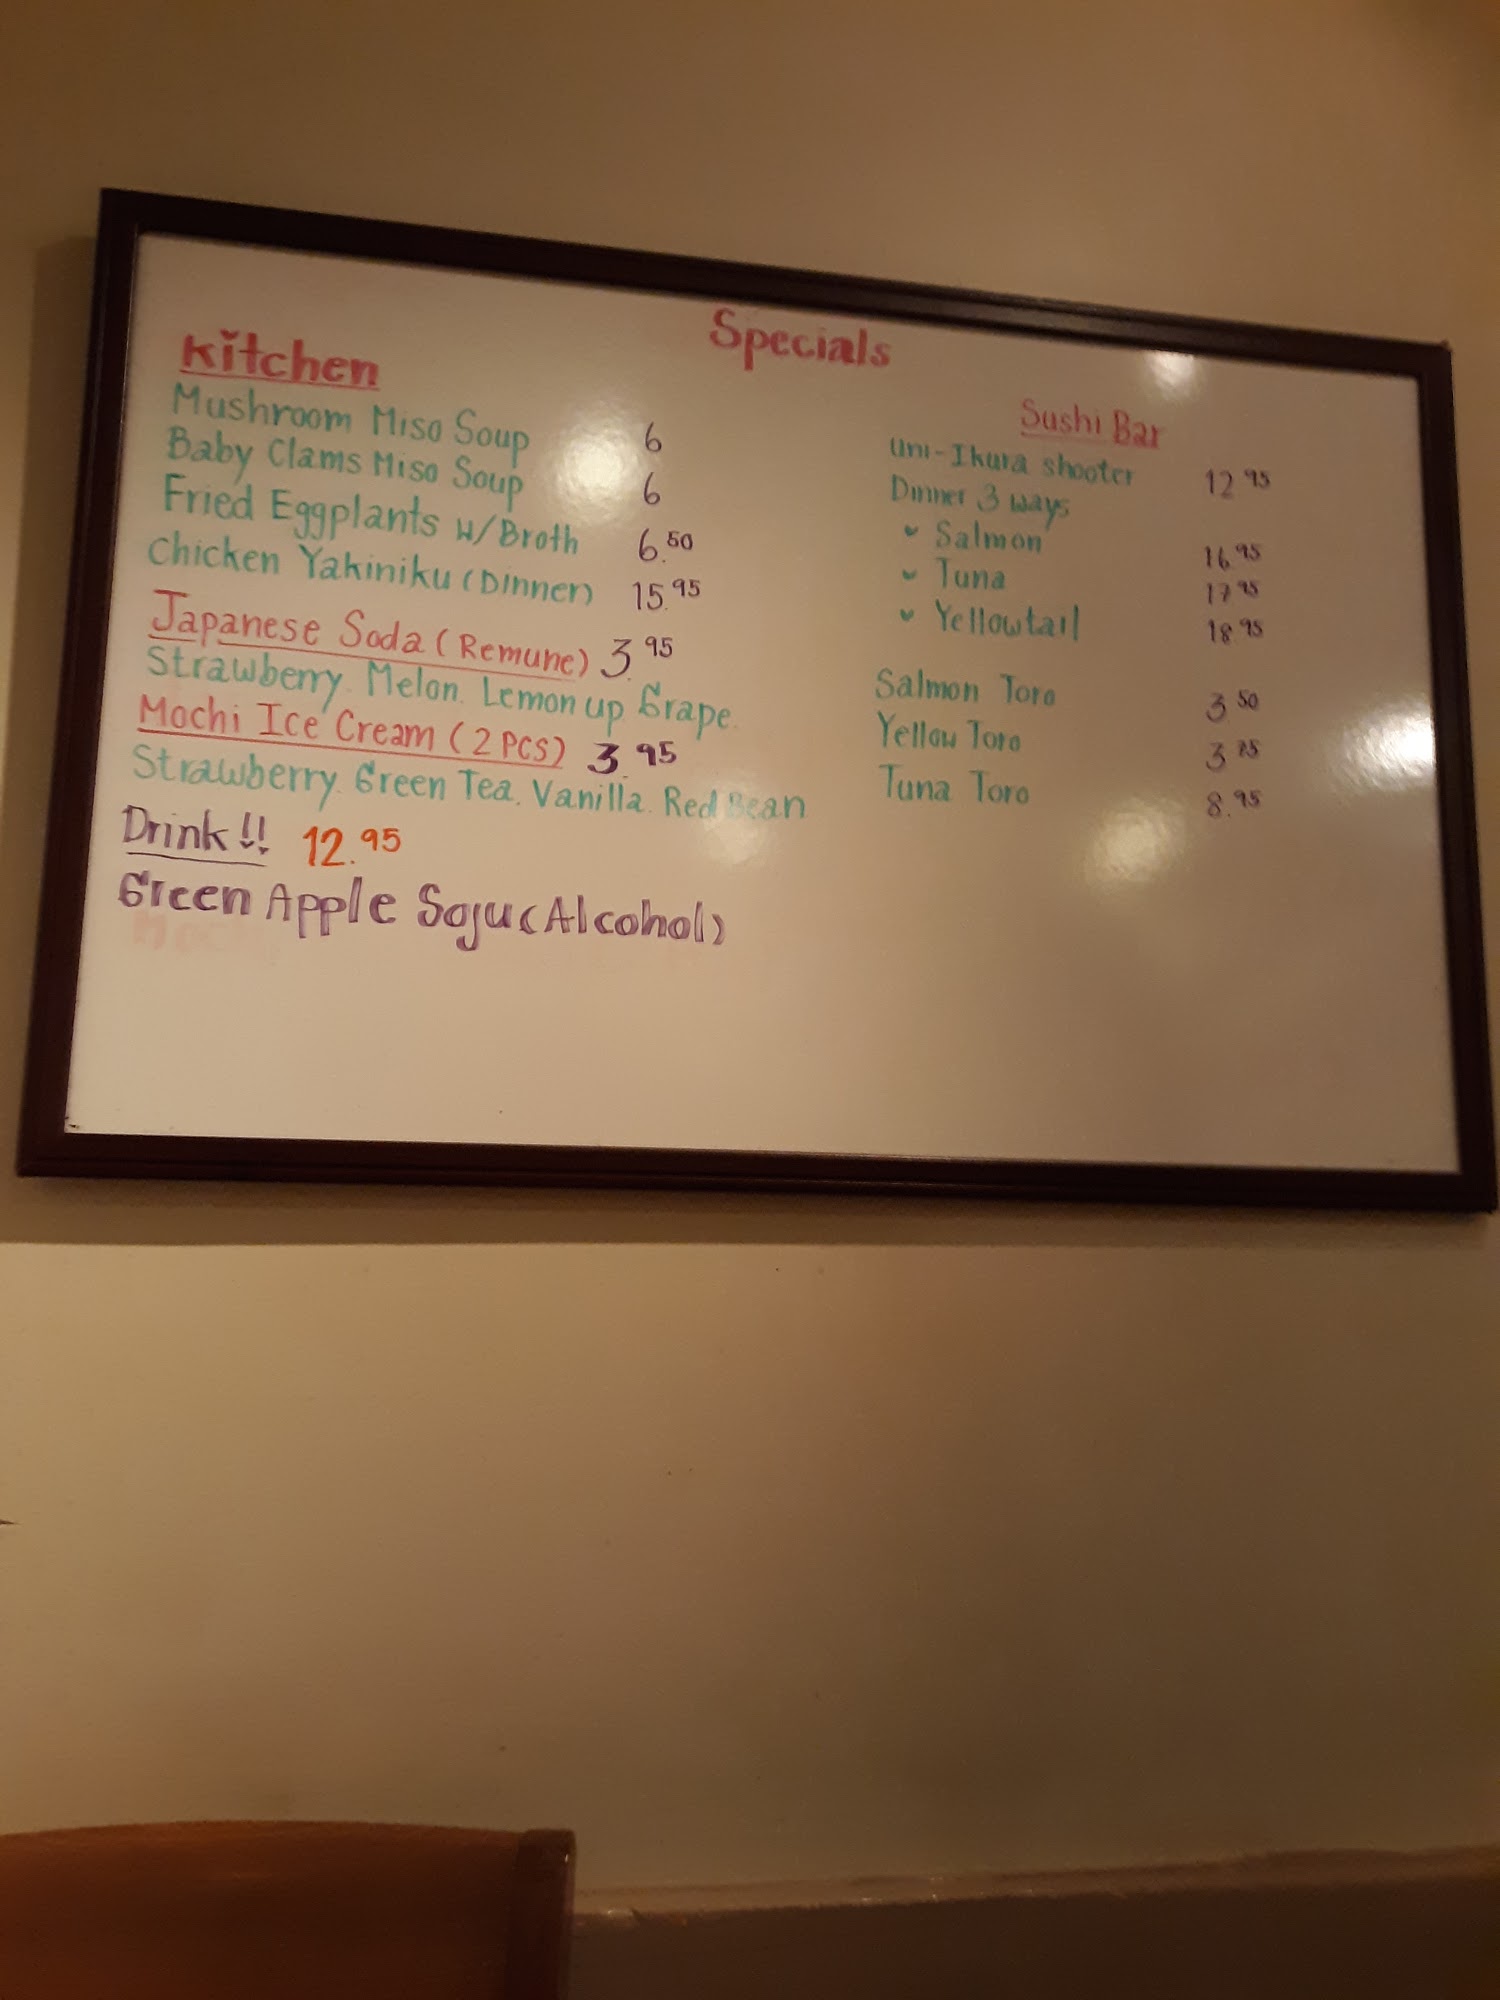 Specials
Kitchen
Mushroom Miso Soup 6
Baby Clams Miso Soup 6
Fried Eggplants w/Broth 6.50
Chicken Yakiniku (Dinner) 15.95
Japanese Soda (Remune) 3.95
Strawberry. Melon. Lemon up Grape.
Mochi Ice Cream (2 PCS) 3.95
Strawberry. Green Tea. Vanilla. Red Bean
Drink!! 12.95
Green Apple Soju (Alcohol)
Sushi Bar
Uni-Ikura shooter 12 95
Dinner 3 ways
Salmon 16.95
Tuna 17 95
Yellowtail 18 95
Salmon Toro 3 50
Yellow Toro 3
Tuna Toro 8.95